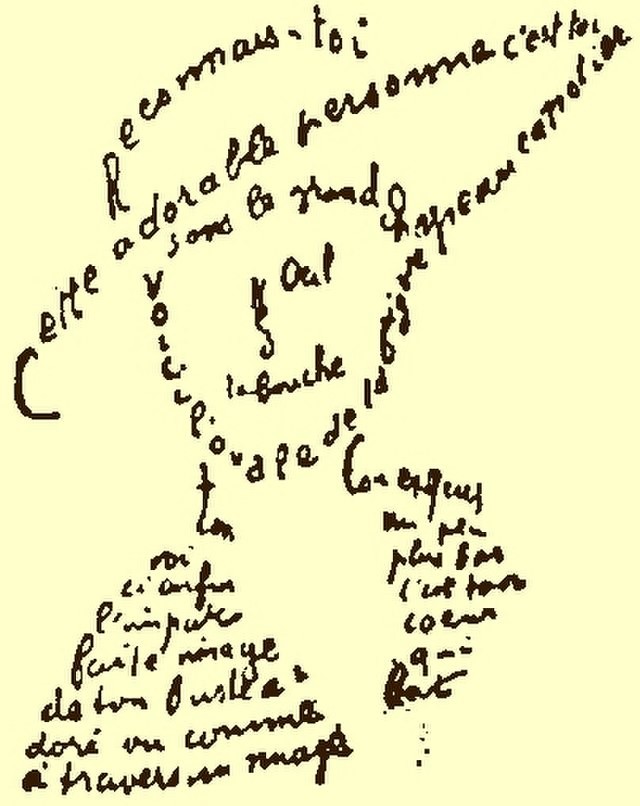 Reconnais-toi
Cette adorable personne c'est toi
sous le grand chapeau canotier
Oeil
Nez
la bouche
Voici l'ovale de ta figure
ton
cou exquis
voi
ci enfin
l'imparfaite image
de ton buste a
doré vu comme
à travers un nuage
un peu
plus bas
c'est ton
coeur
qui
bat